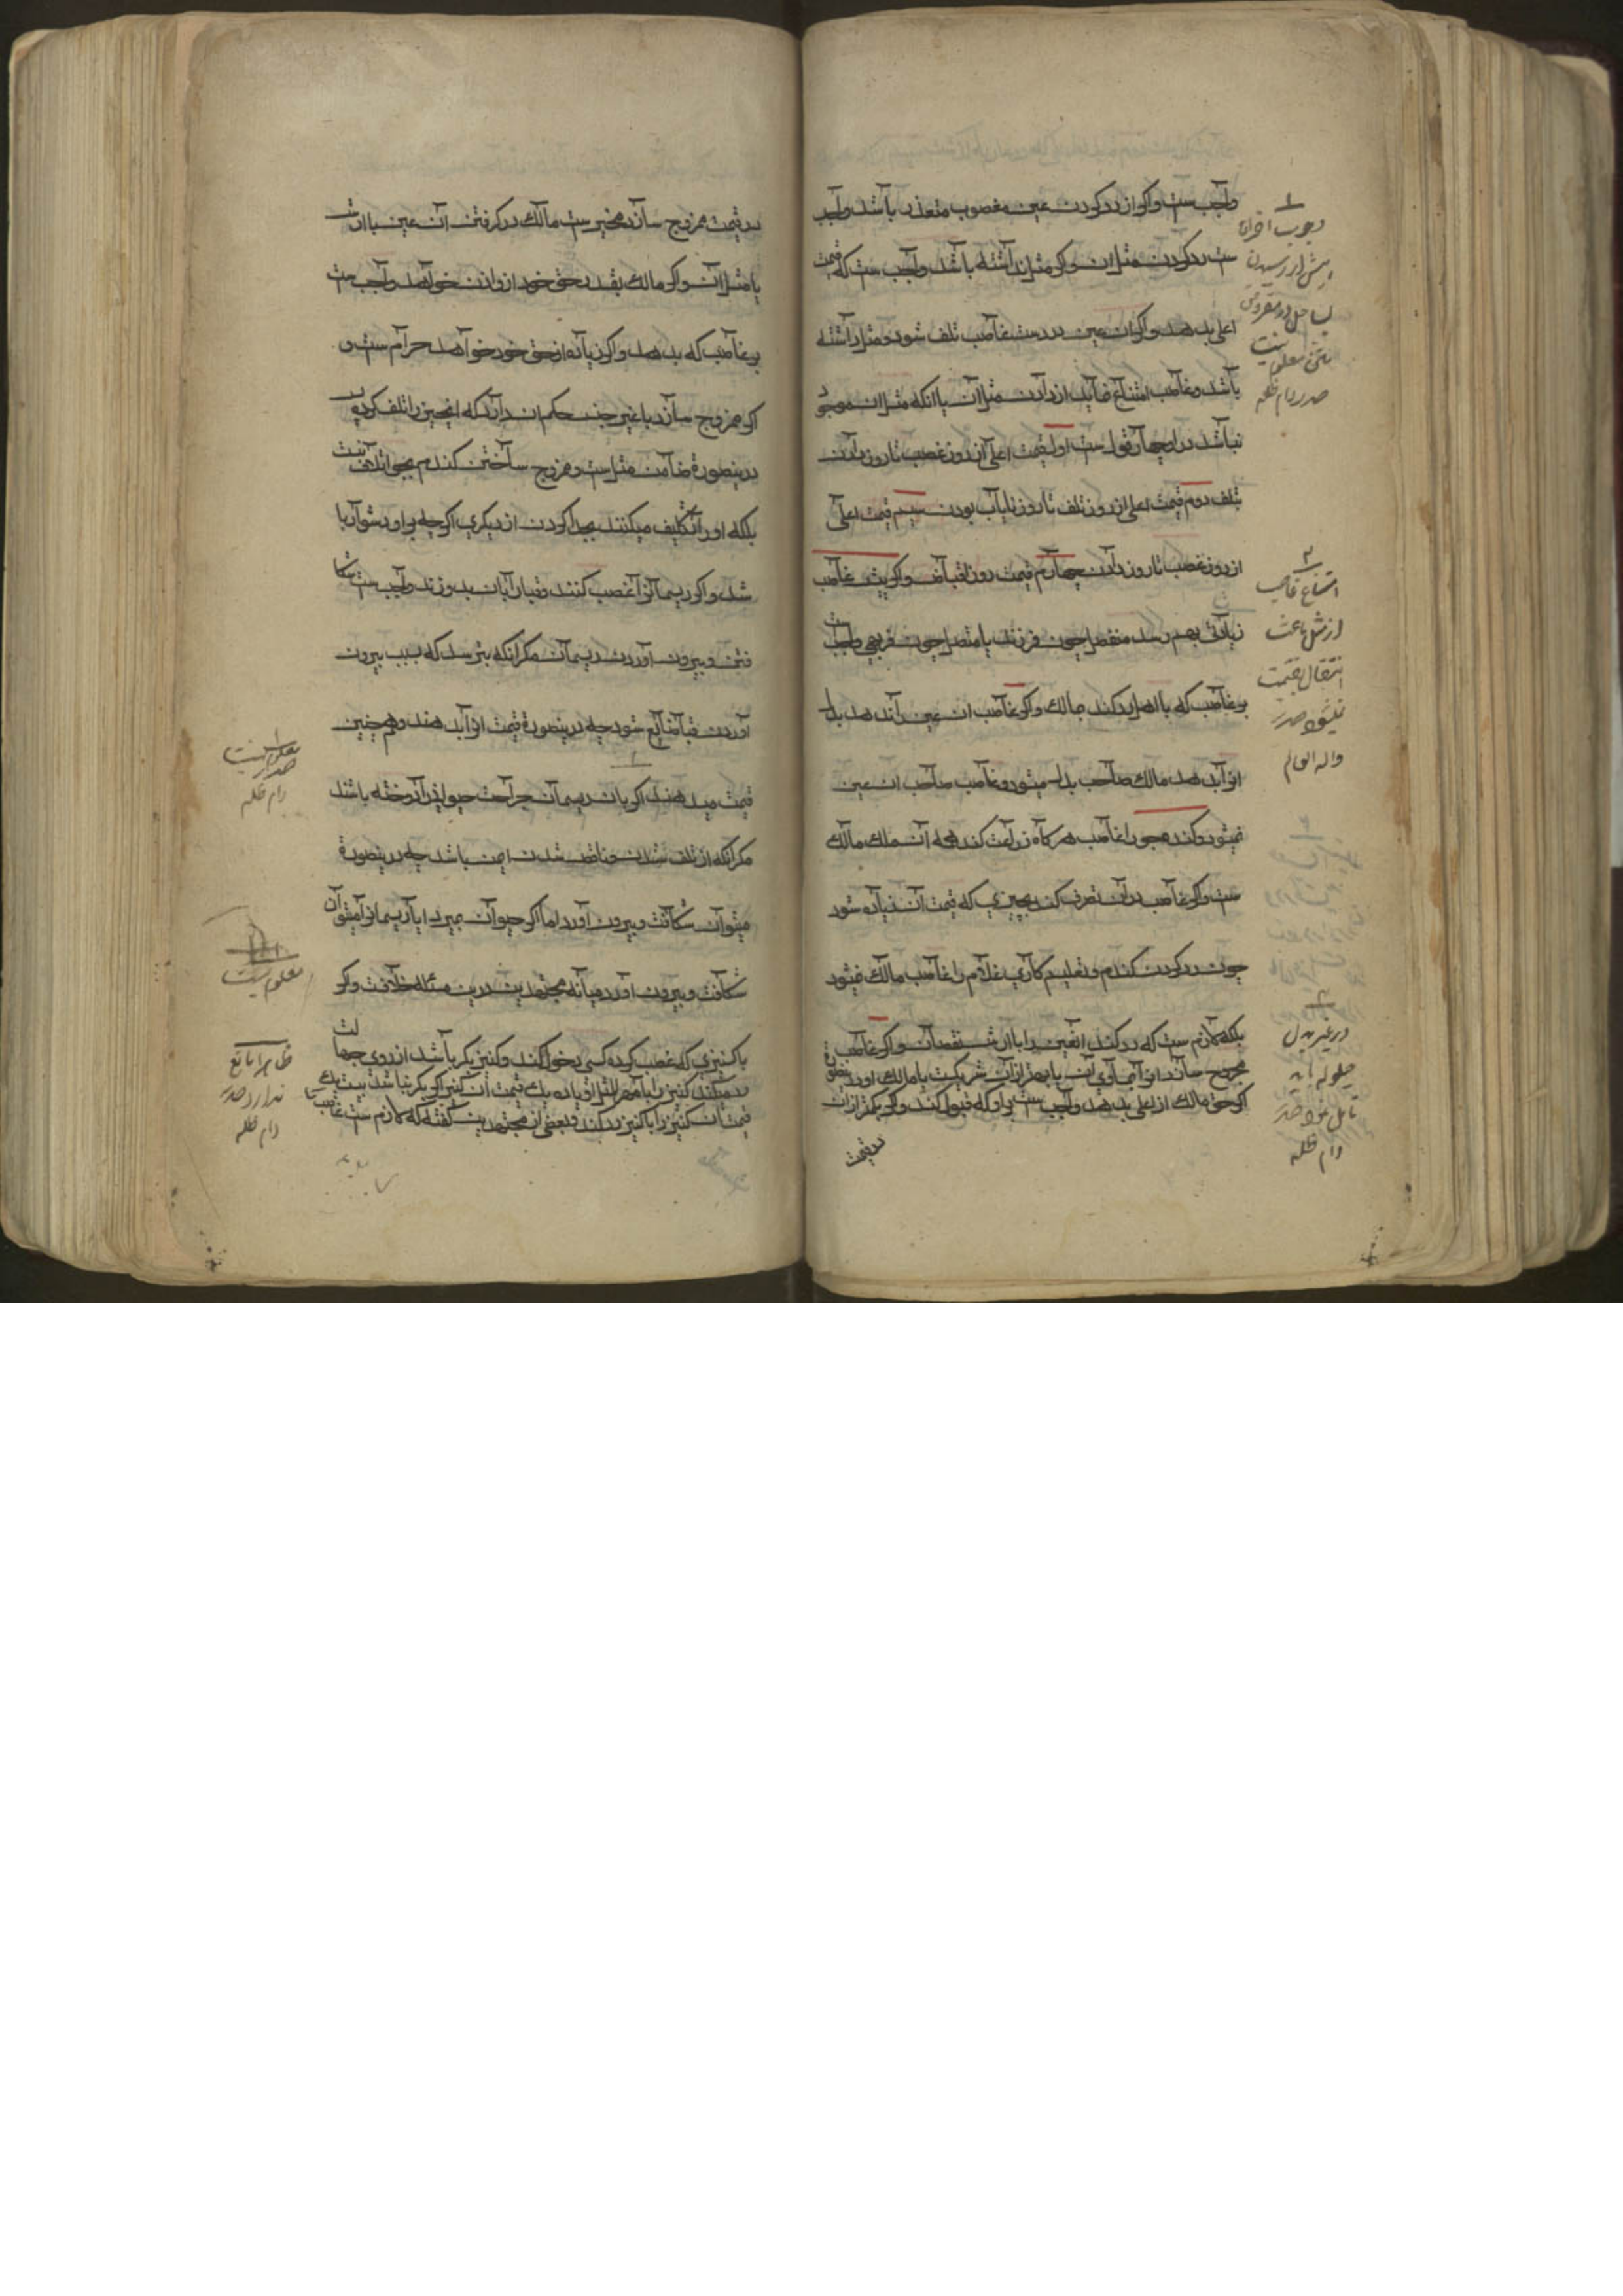 واجب ست و اکر از رد کردن عین مغصوب متعذر باشد واجب
ست رد کردن مثل ان و اکر مثل نداشته باشد واجب ست که قیمت
اعلی بدهد و اکر ان عین در دست غاصب تلف شود و مثل داشته
باشد و غاصب امتناع نماید از دادن مثل آن یا انکه مثل ان موجود
نباشد درو چهار قول ست اول قیمت اعلی از روز غصب تا روز دادن
تلف دوم قیمت اعلی از روز تلف تا روز نایاب بودن سیم قیمت اعلی
از روز غصب تا روز دادن چهارم قیمت روز اقباض و اکر پیش غاصب
زیادتی بهم رسد منفصل چون فرزند یا متصل چون فربهی واجب ست
بر غاصب که با اصل رد کند بمالک و اکر غاصب ان عین را ندهد بدل
انرا بدهد مالک صاحب بدل میشود و غاصب صاحب ان عین
نمیشود و کندم و جو را غاصب هر کاه زراعت کند همه آن ملک مالک
ست و اکر غاصب در آن تصرف کند بچیزی که قیمت آن زیاده شود
چون رد کردن کندم و تعلیم کاری غلام را غاصب مالک نمیشود
بلکه لازم ست که رد کند انعین را با ارش نقصان و اکر غاصب
ممزوج سازد انرا بمساوی آن یا بهتر از آن شریکست با مالک و درینصورة
اکر حق مالک از اعلی بدهد واجب ست بر او که قبول کند و اکر بکمتر از ان
در قیمت
۱
وجوب اخراج
پیش از رسیدن
بساحل در مفروض
متن معلوم نیست
صدر دام ظله
۲
امتناع غاصب
از مثل باعث
انتقال بقیمت
نمیشود صدر
والله العالم
۳
در غیر بدل
حیلوله باید
تامل نمود صدر
دام ظله
در قیمت ممزوج سازد مخیر ست مالک در کرفتن آن عین با ارش
یا مثل آن و اکر مالک بقدر حق خود از وادن خواهد واجب ست
بر غاصب که بدهد و اکر زیاده از حق خود خواهد حرام ست و
اکر ممزوج سازد با غیر جنس حکم ان دارد که انچیز را تلف کرده
درینصورة ضامن مثل ست و ممزوج ساختن کندم بجو اتلاف نیست
بلکه او را تکلیف میکنند بجدا کردن از دیکری اکر چه بر او دشوار با
شد و اکر ریسمانرا غصب کنند و قبا را بان بدوزند واجب ست شکا
فتن و بیرون آوردن ریسمان مکر انکه بترسد که بسبب بیرون
آوردن قبا ضایع شود چه درینصورة قیمت انرا بدهند و همچنین
قیمت میدهند اکر بان ریسمان جراحت حیوانرا دوخته باشند
مکر انکه از تلف شدن و ناقص شدن ایمن باشد چه درینصورة
میتوان شکافت و بیرون آورد اما اکر حیوان بمیرد ایا ریسمانرا میتوان
شکافت و بیرون آورد میانه مجتهدین درین مسئله خلافست و اکر
با کنیزی که غصب کرده کسی دخول کند و کنیز بکر باشد از روی جهالت
رد میکند کنیز را با مهر المثل او یا ده یک قیمت آن کنیز اکر بکر نباشد بیست یک
قیمت ان کنیز را با کنیز رد کند و بعضی از مجتهدین کفته که لازم ست غاصب را
معلوم نیست
صدر
دام ظله
معلوم نیست
ظاهرا مانع
ندارد صدر
دام ظله